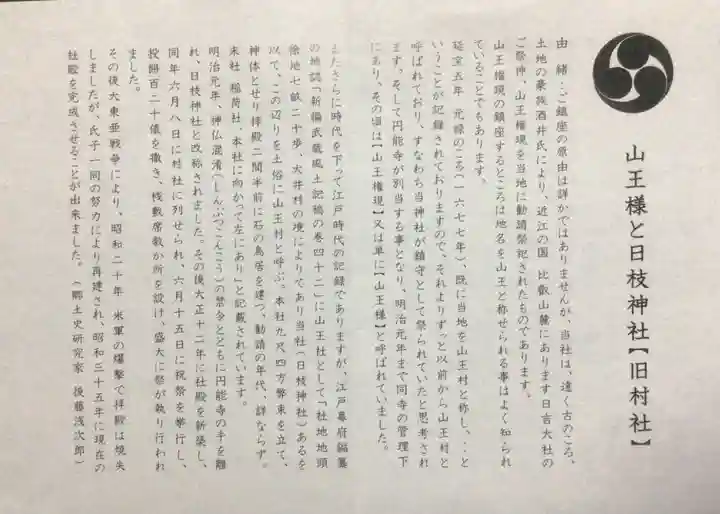 山王様と日枝神社【旧村社】
由　緒：ご鎮座の原由は詳かではありませんが、当社は、遠く古のころ、
土地の豪族酒井氏により、近江の国　比叡山麓にあります日吉大社の
ご祭神、山王権現を当地に勧請祭祀されたものであります。
山王権現の鎮座するところは地名を山王と称せられる事はよく知られ
ていることでもあります。
延宝五年　元禄のころ（一六七七年）、既に当地を山王村と称し、‥と
いうことが記録されておりますので、それよりずっと以前から山王村と
呼ばれており、すなわち当神社が鎮守として祭られていたと思考され
ます。そして円能寺が別当する事となり、明治元年まで同寺の管理下
にあり、その頃は【山王権現】又は単に【山王様】と呼ばれていました。
またさらに時代を下って江戸時代の記録でありますが、江戸幕府編纂
の地誌「新編武蔵風土記稿の巻四十二」に山王社として「社地地頭
除地七畝二十歩、大井村の境によりてあり当社（日枝神社）あるを
以て、この辺りを土俗に山王村と呼ぶ。本社九尺四方弊束を立て、
神体とせり拝殿二間半前に石の鳥居を建つ、勧請の年代、詳ならず。
末社　稲荷社、本社に向かって左にあり」と記載されています。
明治元年、神仏混淆（しんぶつこんこう）の禁令とともに円能寺の手を離
れ、日枝神社と改称されました。その後大正十二年に社殿を新築し、
同年六月八日に村社に列せられ、六月十五日に祝祭を挙行し、
投餅百二十俵を撒き、桟敷席数か所を設け、盛大に祭が執り行われ
ました。
その後大東亜戦争により、昭和二十年　米軍の爆撃で拝殿は焼失
しましたが、氏子一同の努力により再建され、昭和三十五年に現在の
社殿を完成させることが出来ました。（郷土史研究家　後藤浅次郎）